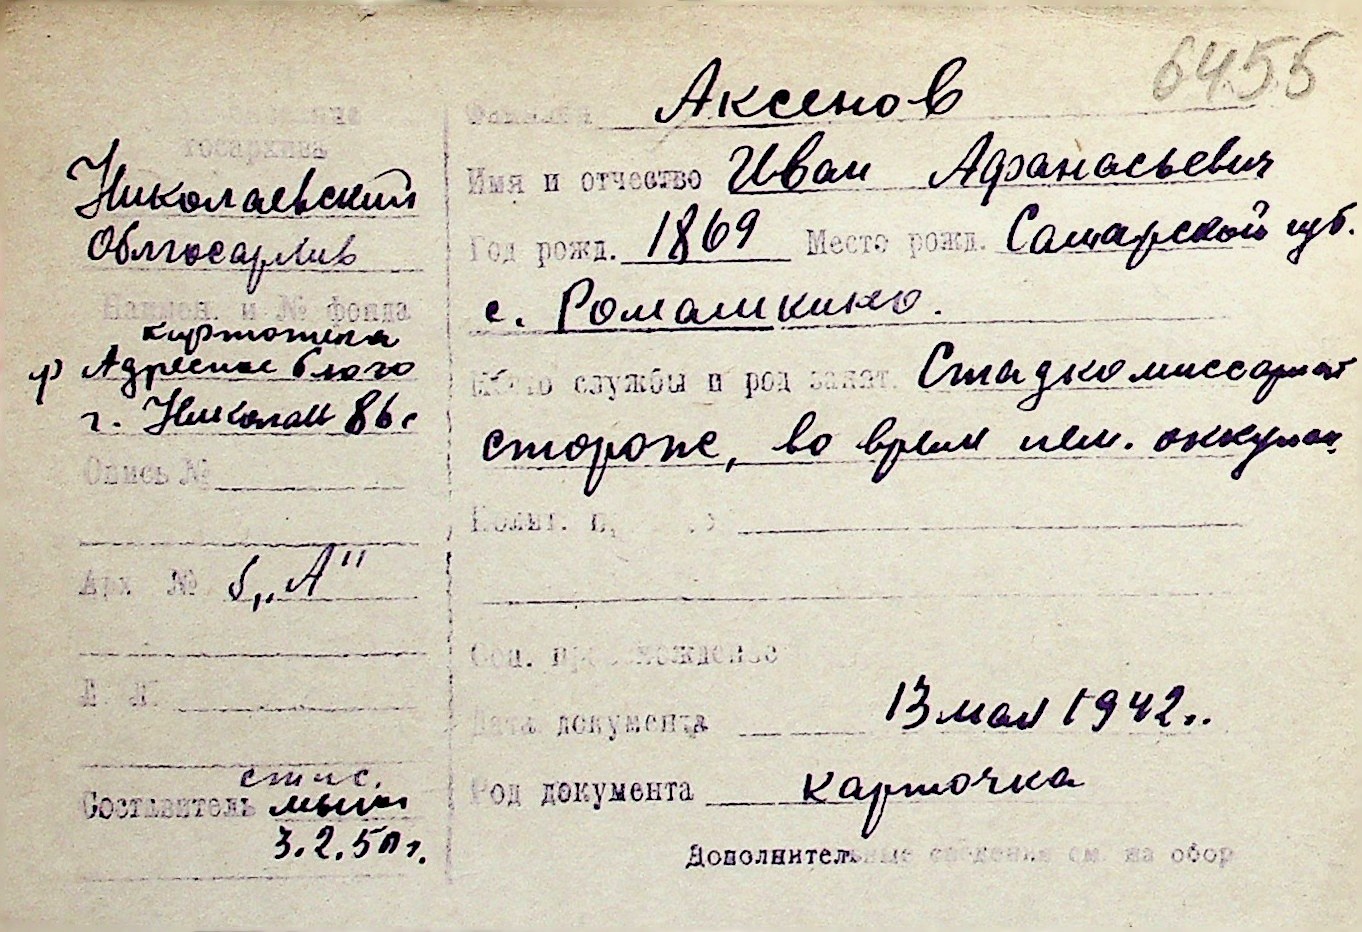 6455
госархива
Николаевский
Облгосархив
Наимен. и № фонда
картотека
Адресное бюро
г. Николаев
Опись №
Арх. № б„А"
Составитель
3.2.50г.
Фамилия Аксенов
Имя и отчество Иван Афанасьевич
Год рожд. 1869 Место рожд. Самарской губ.
с. Ромашкино.
Место службы и род занят.
сторож, во время нем. оккупац.
Соц. происхождение
Дата документа 13 мая 1942г.
Род документа карточка
Дополнительные сведения см. на обор